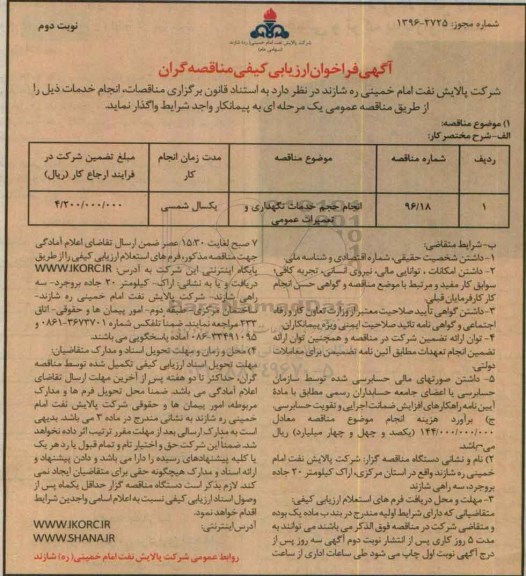 شماره مجوز: ۲۷۲۵-۱۳۹۶
نوبت دوم
شرکت پالایش نفت امام خمینی(ره) شازند
(سهامی عام)
آگهی فراخوان ارزیابی کیفی مناقصه گران
شرکت پالایش نفت امام خمینی ره شازند در نظر دارد به استناد قانون برگزاری مناقصات، انجام خدمات ذیل را
از طریق مناقصه عمومی یک مرحله ای به پیمانکار واجد شرایط واگذار نماید.
۱) موضوع مناقصه:
الف-شرح مختصر کار:
ردیف | شماره مناقصه | موضوع مناقصه | مدت زمان انجام کار | مبلغ تضمین شرکت در فرایند ارجاع کار (ریال)
۱ | ۹۶/۱۸ | انجام حجم خدمات نگهداری و تعمیرات عمومی | یکسال شمسی | ۴/۲۰۰/۰۰۰/۰۰۰
ب-شرایط متقاضی:
۱- داشتن شخصیت حقیقی، شماره اقتصادی و شناسه ملی.
۲- داشتن امکانات، توانایی مالی، نیروی انسانی، تجربه کافی،
سوابق کار مفید و مرتبط با موضع مناقصه و گواهی حسن انجام
کار کارفرمایان قبلی.
۳- داشتن گواهی تأیید صلاحیت معتبر از وزارت تعاون کار و رفاه
اجتماعی و گواهی نامه تائید صلاحیت ایمنی ویژه پیمانکاران
۴- توان ارائه تضمین شرکت در مناقصه و همچنین توان ارائه
تضمین انجام تعهدات مطابق آئین نامه تضمین برای معاملات
دولتی.
۵- داشتن صورتهای مالی حسابرسی شده توسط سازمان
حسابرسی یا اعضای جامعه حسابداران رسمی مطابق با مادة
آیین نامه راهکارهای افزایش ضمانت اجرایی و تقویت حسابرسی.
ج) برآورد هزینه انجام موضوع مناقصه معادل
۱۴۴/۰۰۰/۰۰۰/۰۰۰ (یکصد و چهل و چهار میلیارد) ریال
می باشد.
۲) نام و نشانی دستگاه مناقصه گزار: شرکت پالایش نفت امام
خمینی ره شازند واقع در استان مرکزی، اراک کیلومتر ۲۰ جاده
بروجرد، سه راهی شازند
۳- مهلت و محل دریافت فرم های استعلام ارزیابی کیفی:
متقاضیانی که دارای شرایط اولیه مندرج در بند ب ماده یک بوده
و متقاضی شرکت در مناقصه فوق الذکر می باشند می توانند به
مدت ۵ روز کاری پس از انتشار نوبت دوم آگهی سه روز پس از
درج آگهی نوبت اول چاپ می شود طی ساعات اداری از ساعت
۷ صبح لغایت ۱۵:۳۰ عصر ضمن ارسال تقاضای اعلام آمادگی
جهت مناقصه مذکور، فرم های استعلام ارزیابی کیفی را از طریق
پایگاه اینترنتی این شرکت به آدرس: WWW.IKORC.IR
دریافت و یا به نشانی: اراک- کیلومتر ۲۰ جاده بروجرد- سه
راهی شازند- شرکت پالایش نفت امام خمینی ره شازند-
ساختمان مرکزی- طبقه دوم- امور پیمان ها و حقوقی- اتاق
۲۳۳ مراجعه نمایند. ضمناً تلفکس شماره ۳۶۷۳۷۰۱-۰۸۶۱ و
۳۳۴۹۱۰۹۵-۰۸۶ آماده پاسخگویی می باشند.
۴) محل و زمان و مهلت تحویل اسناد و مدارک متقاضیان:
مهلت تحویل اسناد ارزیابی کیفی تکمیل شده توسط مناقصه
گران، حداکثر تا دو هفته پس از آخرین مهلت ارسال تقاضای
اعلام آمادگی می باشد. ضمناً محل تحویل فرم ها و مدارک
مربوطه، امور پیمان ها و حقوقی شرکت پالایش نفت امام
خمینی ره شازند به نشانی مندرج در ماده ۳ می باشد. بدیهی
است به مدارک ارسالی بعد از مهلت مقرر ترتیب اثر داده نخواهد
شد. ضمناً این شرکت حق و اختیار تام و تمام قبول یا رد هر یک
یا کلیه پیشنهادهای رسیده را دارا می باشد و دادن پیشنهاد و
ارائه اسناد و مدارک هیچگونه حقی برای متقاضیان ایجاد نمی
کند. لازم بذکر است دستگاه مناقصه گزار حداقل یکماه پس از
وصول اسناد ارزیابی کیفی نسبت به اعلام اسامی واجدین شرایط
اقدام خواهد نمود.
آدرس اینترنتی: WWW.IKORC.IR
WWW.SHANA.IR
روابط عمومی شرکت پالایش نفت امام خمینی(ره) شازند